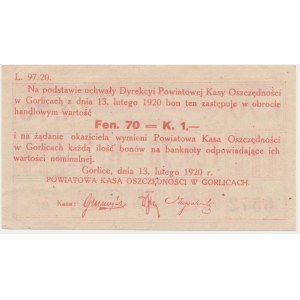 L. 97/20.
Na podstawie uchwały Dyrekcyi Powiatowej Kasy Oszczędności
w Gorlicach z dnia 13. lutego 1920 bon ten zastępuje w obrocie
handlowym wartość
Fen. 70 = K. 1.—
i na żądanie okaziciela wymieni Powiatowa Kasa Oszczędności
w Gorlicach każdą ilość bonów na banknoty odpowiadające ich
wartości nominalnej.
Gorlice, dnia 13. lutego 1920 r.
POWIATOWA KASA OSZCZĘDNOŚCI W GORLICACH.
Kasa: